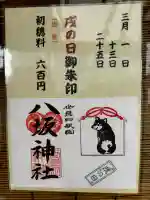 三月 一日
十三日
二十五日
戌の日御朱印
初穂料 六百円
八坂神社